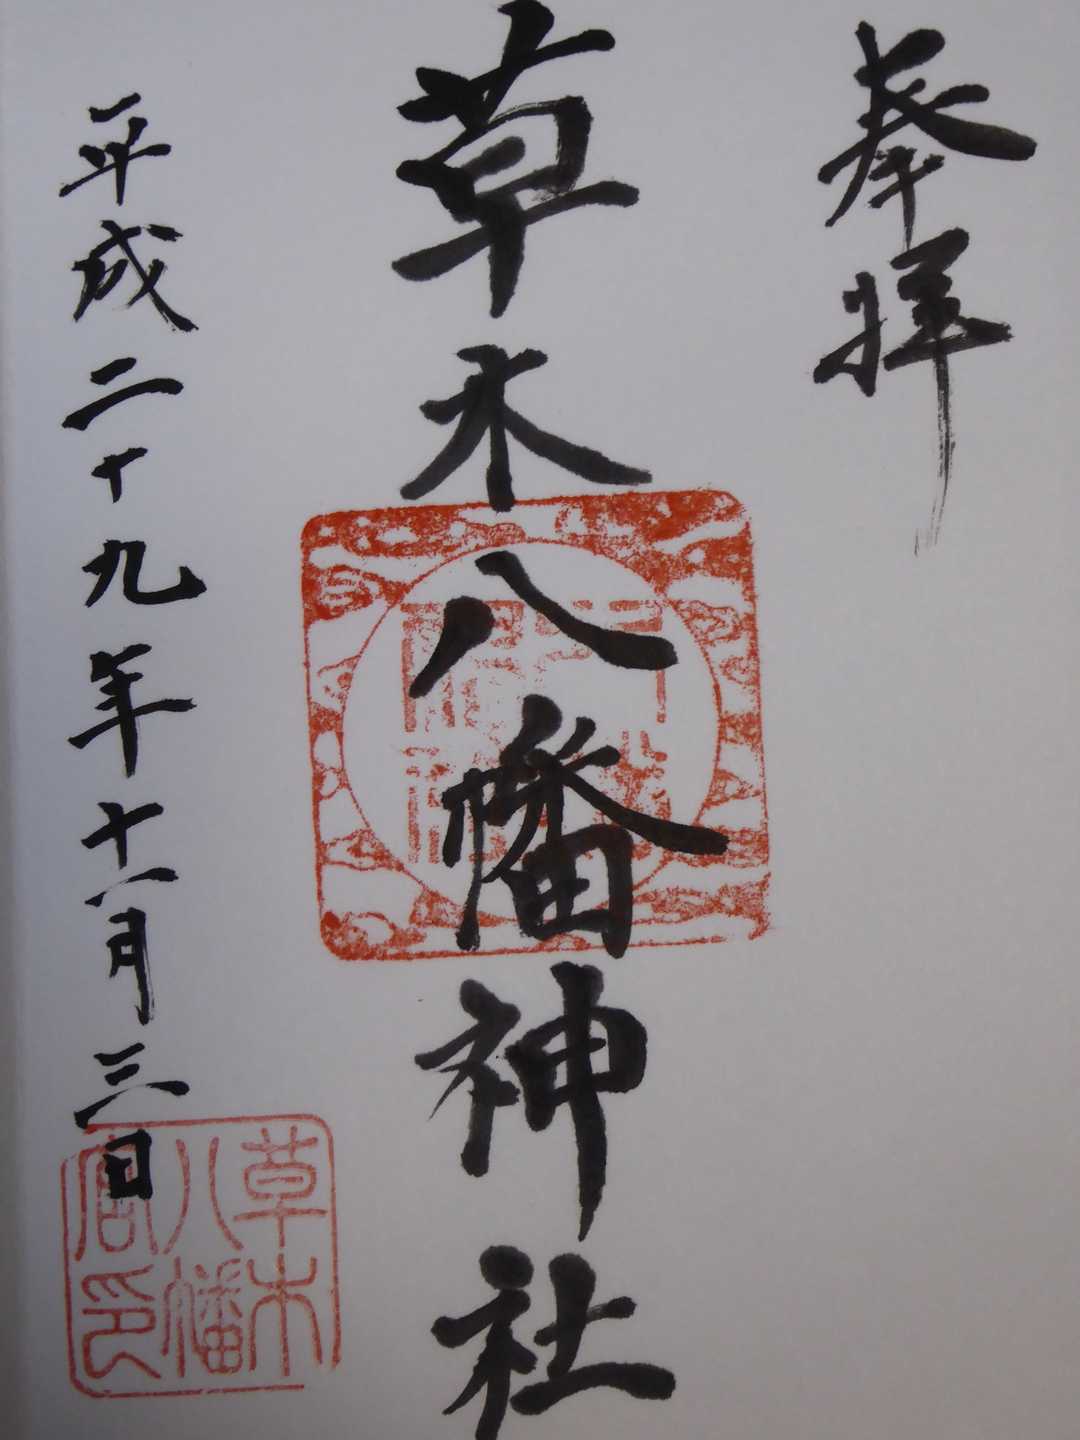 奉拝
草木八幡神社
平成二十九年十一月三日
草木
八幡
宮印